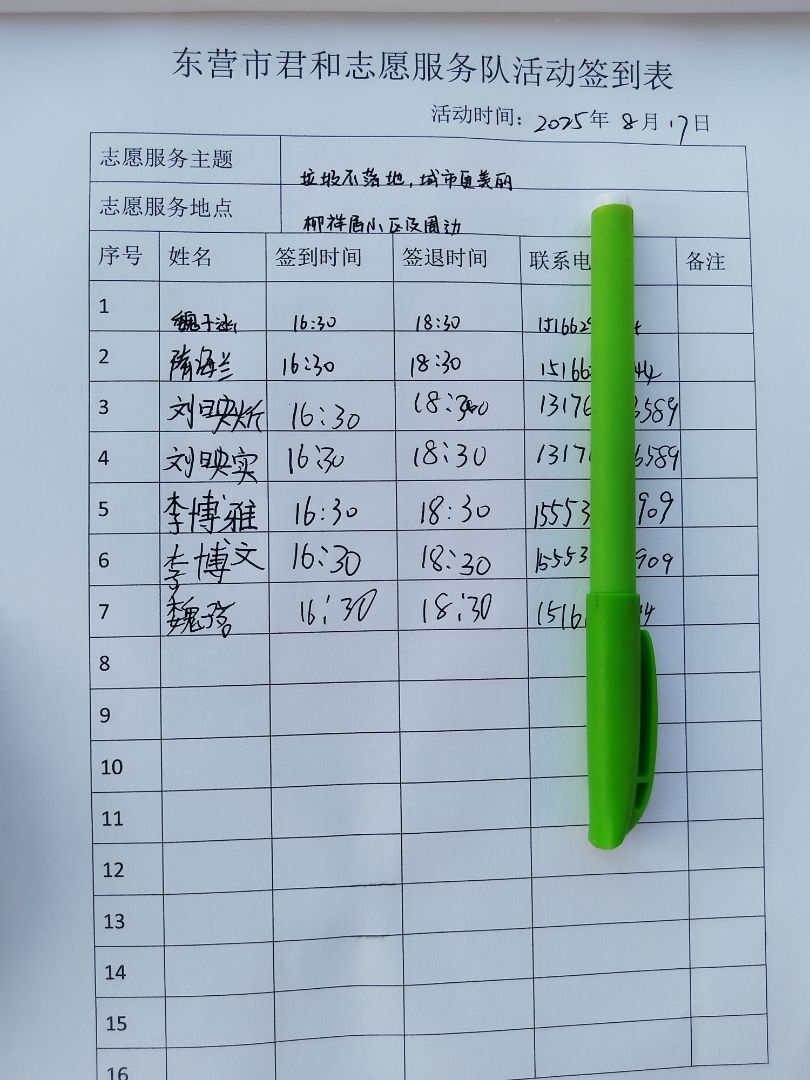 东营市君和志愿服务队活动签到表
活动时间：2025年 8月 17日
志愿服务主题 垃圾不落地，城市更美丽
志愿服务地点 柳祥居小区及周边
序号 姓名 签到时间 签退时间 联系电 备注
1 魏子涵 16:30 18:30 151662
2 隋海兰 16:30 18:30 15166 44
3 刘映炘 16:30 18:30 1317 3589
4 刘映实 16:30 18:30 1317 6589
5 李博雅 16:30 18:30 15553 909
6 李博文 16:30 18:30 15553 909
7 魏 16:30 18:30 1516 4
8
9
10
11
12
13
14
15
16